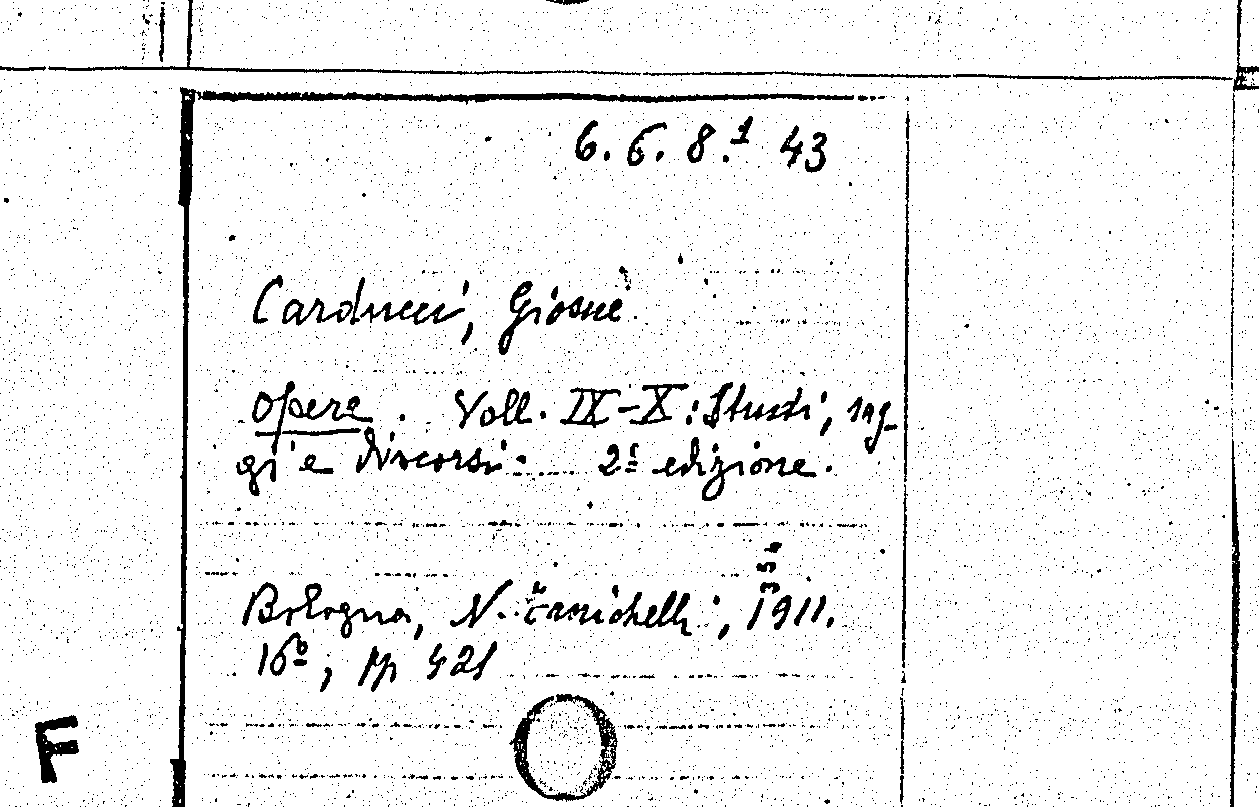 6.6.8.1 43
Carducci, Giosuè
Opere. Voll. IX-X: Studi, sag-
gi e discorsi. 2ª edizione.
354
Bologna, N. Zanichelli, 1911.
16º, pp 421
F